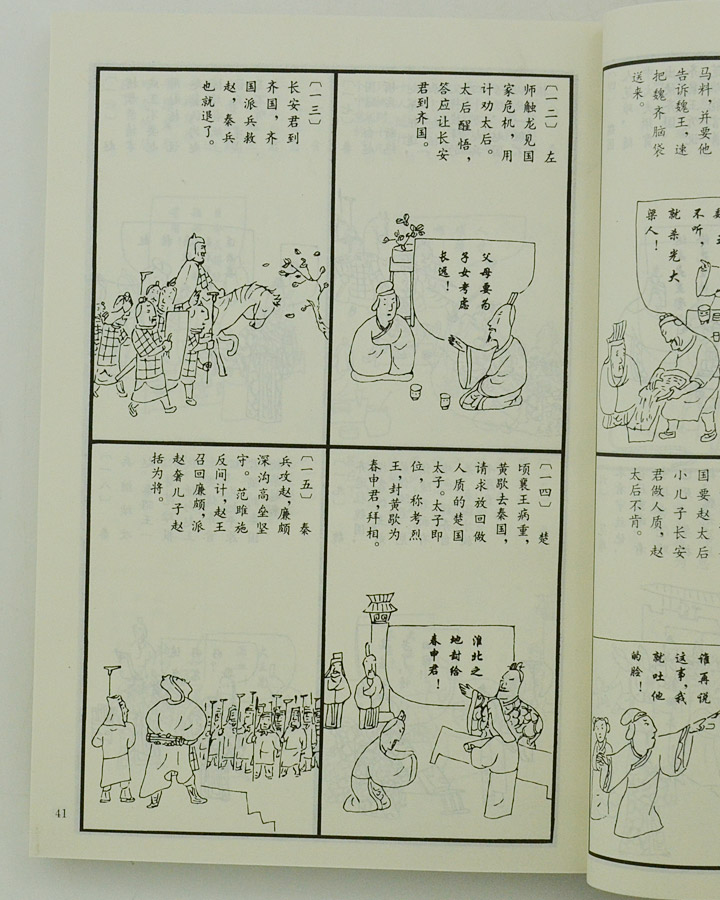 马料，并要他
告诉魏王，速
把魏齐脑袋
送来。
不听，
就杀光大
梁人！
国要赵太后
小儿子长安
君做人质，赵
太后不肯。
谁再说
这事，我
就吐他
的脸！
〔一二〕 左
师触龙见国
家危机，用
计劝太后。
太后醒悟，
答应让长安
君到齐国。
父母要为
子女考虑
长远！
〔一三〕
长安君到
齐国，齐
国派兵救
赵，秦兵
也就退了。
〔一四〕 楚
顷襄王病重，
黄歇去秦国，
请求放回做
人质的楚国
太子。太子即
位，称考烈
王，封黄歇为
春申君，拜相。
淮北之
地封给
春申君！
〔一五〕 秦
兵攻赵，廉颇
深沟高垒坚
守。范雎施
反间计，赵王
召回廉颇，派
赵奢儿子赵
括为将。
41